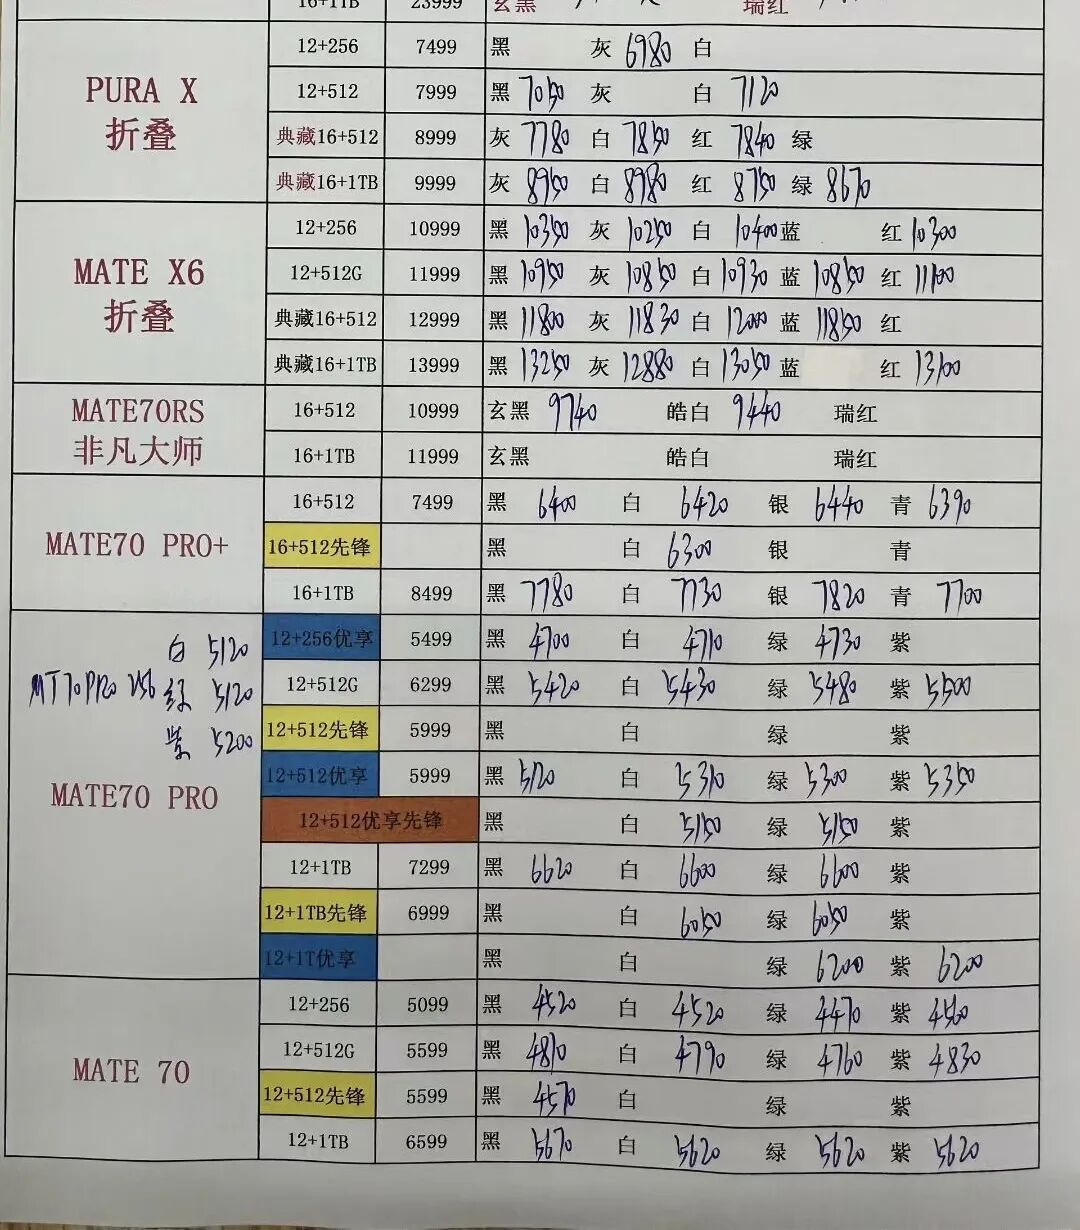 16+1TB 23999 玄黑 瑞红
PURA X
折叠
12+256 7499 黑 灰 6980 白
12+512 7999 黑 7050 灰 白 7120
典藏16+512 8999 灰 7780 白 7850 红 7840 绿
典藏16+1TB 9999 灰 8950 白 8980 红 8750 绿 8670
MATE X6
折叠
12+256 10999 黑 10350 灰 10250 白 10400 蓝 红 10300
12+512G 11999 黑 10950 灰 10850 白 10930 蓝 10850 红 11100
典藏16+512 12999 黑 11800 灰 11830 白 12000 蓝 11850 红
典藏16+1TB 13999 黑 13250 灰 12880 白 13050 蓝 红 13100
MATE70RS
非凡大师
16+512 10999 玄黑 9740 皓白 9440 瑞红
16+1TB 11999 玄黑 皓白 瑞红
MATE70 PRO+
16+512 7499 黑 6400 白 6420 银 6440 青 6390
16+512先锋 黑 白 6300 银 青
16+1TB 8499 黑 7780 白 7730 银 7820 青 7700
白 5120
MT70PRO 256 绿 5120
紫 5200
MATE70 PRO
12+256优享 5499 黑 4700 白 4710 绿 4730 紫
12+512G 6299 黑 5420 白 5430 绿 5480 紫 5500
12+512先锋 5999 黑 白 绿 紫
12+512优享 5999 黑 5120 白 5310 绿 5300 紫 5350
12+512优享先锋 黑 白 5150 绿 5150 紫
12+1TB 7299 黑 6620 白 6600 绿 6600 紫
12+1TB先锋 6999 黑 白 6050 绿 6050 紫
12+1T优享 黑 白 绿 6200 紫 6200
MATE 70
12+256 5099 黑 4520 白 4520 绿 4470 紫 4560
12+512G 5599 黑 4810 白 4790 绿 4760 紫 4830
12+512先锋 5599 黑 4570 白 绿 紫
12+1TB 6599 黑 5670 白 5620 绿 5620 紫 5620